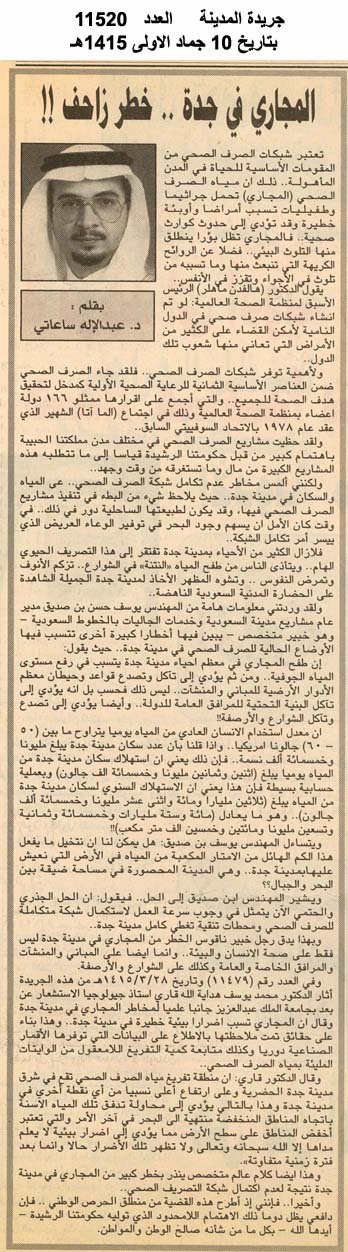 جريدة المدينة العدد 11520
بتاريخ 10 جماد الاولى 1415هـ
المجاري في جدة .. خطر زاحف !!
تعتبر شبكات الصرف الصحي من
المقومات الأساسية للحياة في المدن
المأهولة.. ذلك ان مياه الصرف
الصحي (المجاري) تحمل جراثيما
وطفيليات تسبب أمراضا وأوبئة
خطيرة وقد تؤدي إلى حدوث كوارث
صحية.. فالمجاري تظل بؤرا ينطلق
منها التلوث البيئي.. فضلا عن الروائح
الكريهة التي تنبعث منها وما تسببه من
تلوث في الأجواء وتقزز في الأنفس..
بقلم :
د. عبدالإله ساعاتي
يقول الدكتور (هالفدن ماهلر) الرئيس
الأسبق لمنظمة الصحة العالمية: لو تم
انشاء شبكات صرف صحي في الدول
النامية لأمكن القضاء على الكثير من
الأمراض التي تعاني منها شعوب تلك
الدول..
ولأهمية توفر شبكات الصرف الصحي.. فلقد جاء الصرف الصحي
ضمن العناصر الأساسية الثمانية للرعاية الصحية الأولية كمدخل لتحقيق
هدف الصحة للجميع.. والتي أجمع على اقرارها ممثلو ١٦٦ دولة
اعضاء بمنظمة الصحة العالمية وذلك في اجتماع (الما آتا) الشهير الذي
عقد عام ١٩٧٨ بالاتحاد السوفييتي السابق..
ولقد حظيت مشاريع الصرف الصحي في مختلف مدن مملكتنا الحبيبة
باهتمام كبير من قبل حكومتنا الرشيدة قياسا إلى ما تتطلبه هذه
المشاريع الكبيرة من مال وما تستغرقه من وقت وجهد..
ولكنني ألمس مخاطر عدم تكامل شبكة الصرف الصحي.. على المياه
والسكان في مدينة جدة.. حيث يلاحظ شيء من البطء في تنفيذ مشاريع
الصرف الصحي فيها، وقد يكون لطبيعتها الساحلية دور في ذلك.. في
وقت كان الأمل ان يسهم وجود البحر في توفير الوعاء العريض الذي
ييسر أمر تكامل الشبكة..
فلازال الكثير من الأحياء بمدينة جدة تفتقر إلى هذا التصريف الحيوي
الهام.. ويتأذى الناس من طفح المياه «النتنة» في الشوارع.. تزكم الأنوف
وتمرض النفوس .. وتشوه المظهر الأخاذ لمدينة جدة الجميلة الشاهدة
على الحضارة المدنية السعودية الناهضة..
ولقد وردتني معلومات هامة من المهندس يوسف حسن بن صديق مدير
عام مشاريع مدينة السعودية وخدمات الجاليات بالخطوط السعودية -
وهو خبير متخصص - يبين فيها أخطارا كبيرة أخرى تتسبب فيها
الأوضاع الحالية للصرف الصحي في مدينة جدة.. حيث يقول:
إن طفح المجاري في معظم أحياء مدينة جدة يتسبب في رفع مستوى
المياه الجوفية.. ومن ثم يؤدي إلى تآكل وتصدع قواعد وحيطان معظم
الأدوار الأرضية للمباني والمنشآت.. ليس ذلك فحسب بل انه يؤدي إلى
تآكل البنية التحتية للمرافق العامة للدولة.. وأيضا يؤدي إلى تصدع
وتآكل الشوارع والأرصفة!!
ان معدل استخدام الانسان العادي من المياه يوميا يتراوح ما بين (٥٠
- ٦٠) جالونا امريكيا.. واذا قلنا بأن عدد سكان مدينة جدة يبلغ مليونا
وخمسمائة ألف نسمة.. فإن ذلك يعني ان استهلاك سكان مدينة جدة من
المياه يوميا يبلغ (اثنين وثمانين مليونا وخمسمائة الف جالون) وبعملية
حسابية بسيطة فإن هذا يعني ان الاستهلاك السنوي لسكان مدينة جدة
من المياه يبلغ (ثلاثين مليارا ومائة واثنى عشر مليونا وخمسمائة ألف
جالون).. وهو ما يعادل (مائة وستة مليارات وخمسمائة وثمانية
وتسعين مليونا ومائتين وخمسين الف متر مكعب)!!
ويتساءل المهندس يوسف بن صديق: هل يمكن لنا ان نتخيل ما يفعل
هذا الكم الهائل من الامتار المكعبة من المياه في الأرض التي نعيش
عليها بمدينة جدة.. وهي المدينة المحصورة في مساحة ضيقة بين
البحر والجبال؟؟
ويشير المهندس ابن صديق إلى الحل.. فيقول: ان الحل الجذري
والحتمي الآن يتمثل في وجوب سرعة العمل لاستكمال شبكة متكاملة
للصرف الصحي ومحطات تنقية تغطي كامل مدينة جدة..
وبهذا يدق رجل خبير ناقوس الخطر من المجاري في مدينة جدة ليس
فقط على صحة الانسان والبيئة.. وانما ايضا على المباني والمنشآت
والمرافق الخاصة والعامة وكذلك على الشوارع والأرصفة.
وفي العدد رقم (١١٤٧٩) وتاريخ ١٤١٥/٣/٢٨هـ من هذه الجريدة
أثار الدكتور محمد يوسف هداية الله قاري استاذ جيولوجيا الاستشعار عن
بعد بجامعة الملك عبدالعزيز جانبا علميا لمخاطر المجاري في مدينة جدة
وقال ان المجاري تسبب اضرارا بيئية خطيرة في مدينة جدة.. وهذا بناء
على حقائق تمت ملاحظتها بالاطلاع على البيانات التي توفرها الأقمار
الصناعية دوريا وكذلك متابعة كمية التفريغ اللامعقول من الوايتات
المليئة بمياه الصرف الصحي..
وقال الدكتور قاري: ان منطقة تفريغ مياه الصرف الصحي تقع في شرق
مدينة جدة الحضرية وعلى ارتفاع أعلى نسبيا من أي نقطة أخرى في
مدينة جدة وهذا بالتالي يؤدي إلى محاولة تدفق تلك المياه الآسنة
باتجاه المناطق المنخفضة منتهية الى البحر في آخر الأمر والتي تعتبر
أخفض المناطق على سطح الأرض مما يؤدي إلى اضرار بيئية لا يعلم
مداها إلا الله سبحانه وتعالى ولا تظهر تلك الأضرار حالا وانما بعد
فترة زمنية متفاوتة».
وهذا ايضا كلام عالم متخصص ينذر بخطر كبير من المجاري في مدينة
جدة نتيجة لعدم اكتمال شبكة التصريف الصحي..
وأخيرا.. فإنني إذ أطرح هذه القضية من منطلق الحرص الوطني .. فإن
دافعي يظل دوما ذلك الاهتمام اللامحدود الذي توليه حكومتنا الرشيدة -
أيدها الله - بكل ما من شأنه صالح الوطن والمواطن.